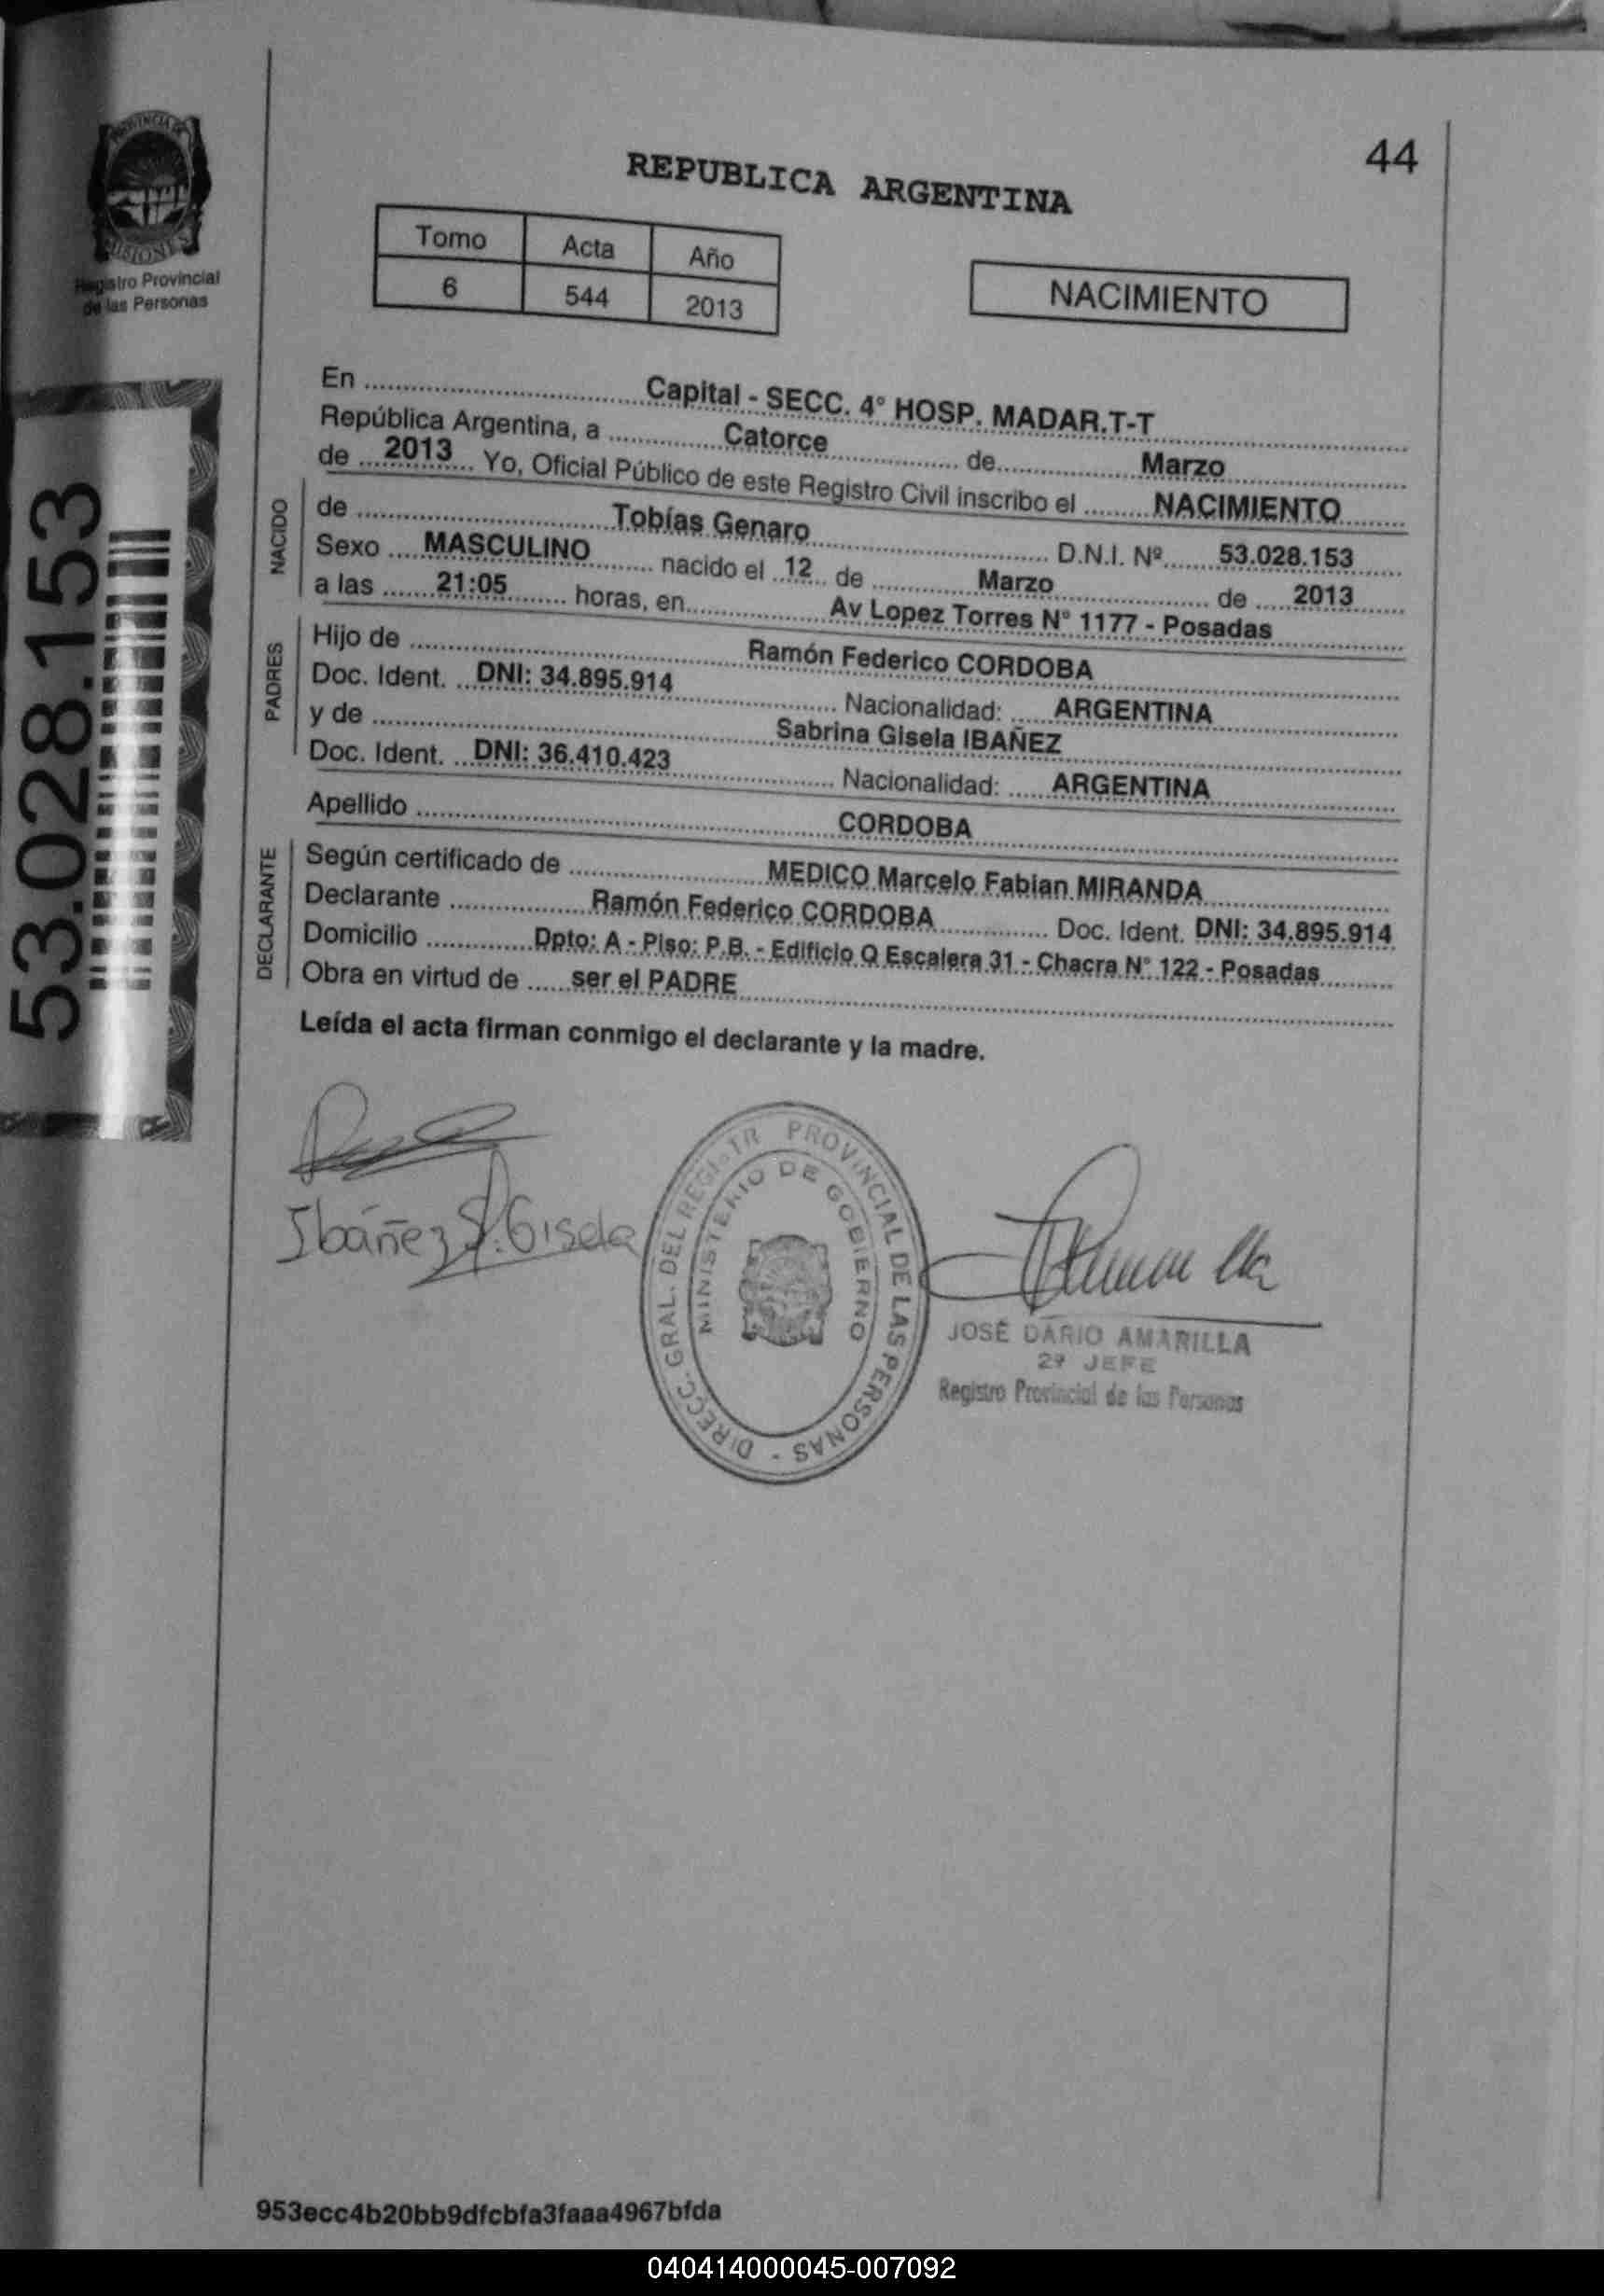 44
REPUBLICA ARGENTINA
PROVINCIA DE
MISIONES
Registro Provincial
de las Personas
Tomo Acta Año
6 544 2013
NACIMIENTO
53.028.153
En Capital - SECC. 4° HOSP. MADAR.T-T
República Argentina, a Catorce de Marzo
de 2013 Yo, Oficial Público de este Registro Civil inscribo el NACIMIENTO
NACIDO
de Tobías Genaro D.N.I. Nº 53.028.153
Sexo MASCULINO nacido el 12 de Marzo de 2013
a las 21:05 horas, en Av Lopez Torres N° 1177 - Posadas
PADRES
Hijo de Ramón Federico CORDOBA
Doc. Ident. DNI: 34.895.914 Nacionalidad: ARGENTINA
y de Sabrina Gisela IBAÑEZ
Doc. Ident. DNI: 36.410.423 Nacionalidad: ARGENTINA
Apellido CORDOBA
DECLARANTE
Según certificado de MEDICO Marcelo Fabian MIRANDA
Declarante Ramón Federico CORDOBA Doc. Ident. DNI: 34.895.914
Domicilio Dpto: A - Piso: P.B. - Edificio Q Escalera 31 - Chacra N° 122 - Posadas
Obra en virtud de ser el PADRE
Leída el acta firman conmigo el declarante y la madre.
Ibáñez S. Gisela
DIRECC. GRAL. DEL REGISTR PROVINCIAL DE LAS PERSONAS -
MINISTERIO DE GOBIERNO
JOSÉ DARIO AMARILLA
2º JEFE
Registro Provincial de las Personas
953ecc4b20bb9dfcbfa3faaa4967bfda
040414000045-007092